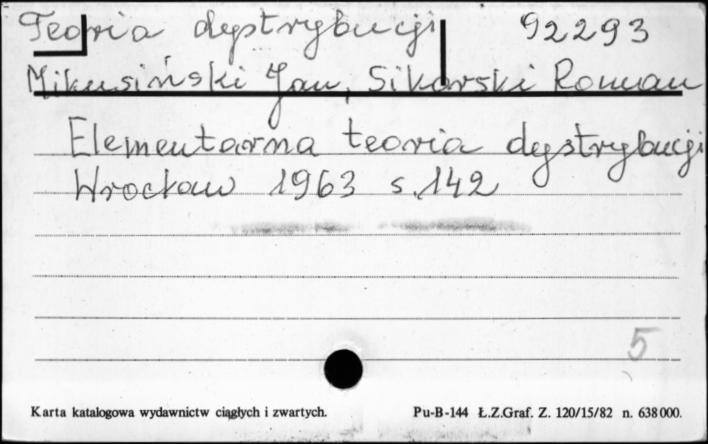 Teoria dystrybucji 92293
Mikusiński Jan, Sikorski Roman
Elementarna teoria dystrybucji
Wrocław 1963 s. 142
5
Karta katalogowa wydawnictw ciągłych i zwartych. Pu-B-144 Ł.Z.Graf. Z. 120/15/82 n. 638000.